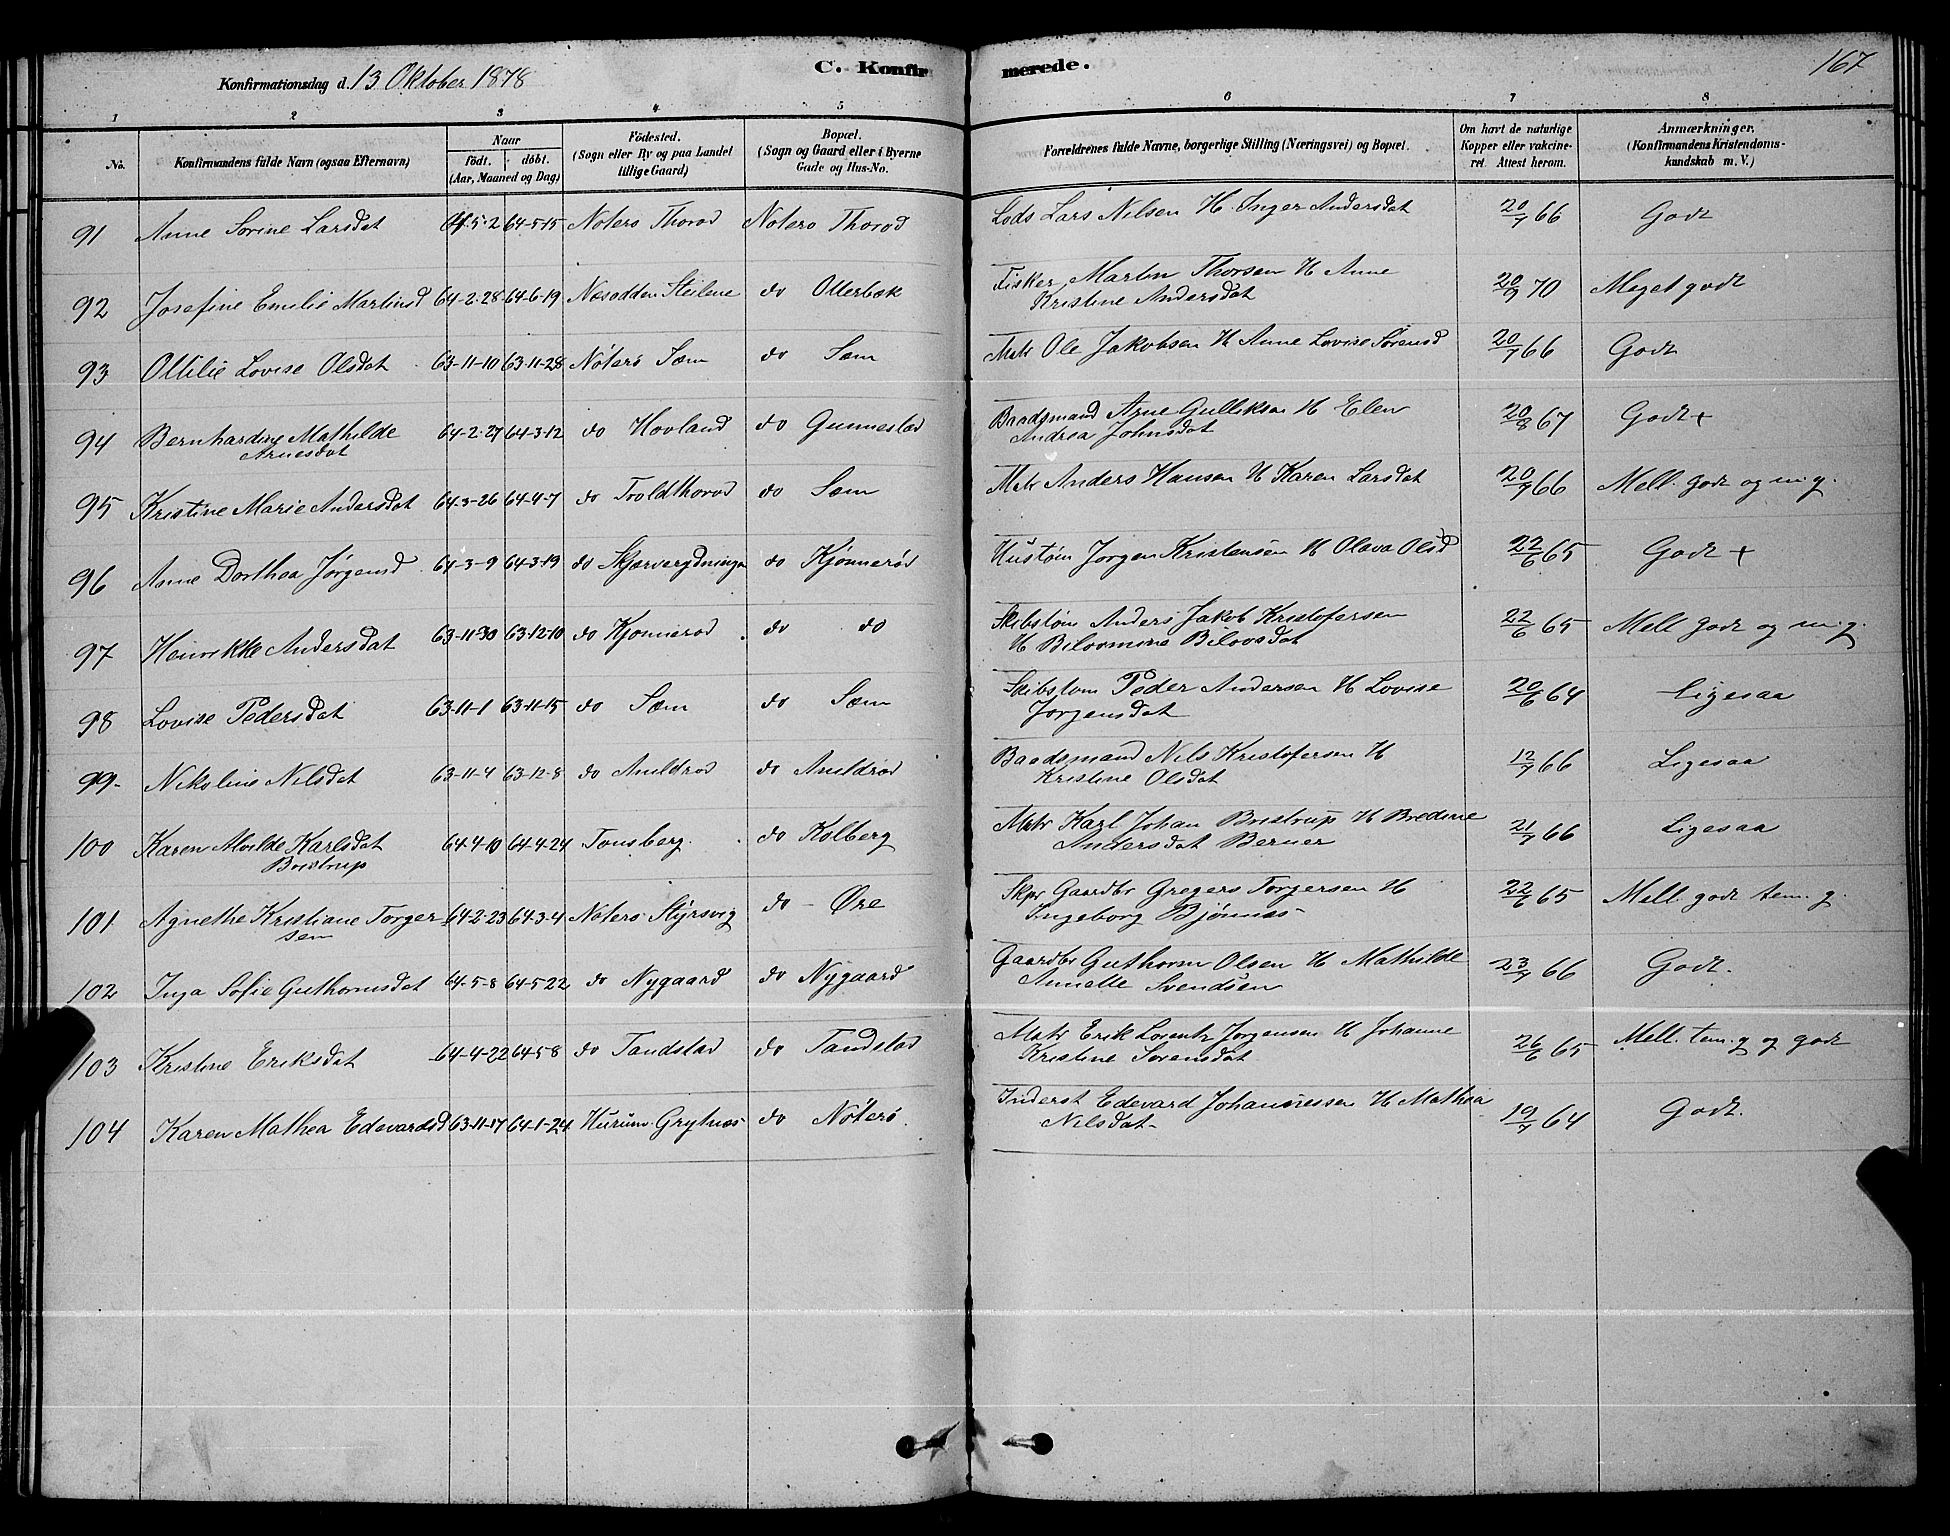 Konfirmationsdag d. 13 Oktober 1878
C. Konfirmerede.
167
1 2 3 4 5 6 7 8
No. | Konfirmandens fulde Navn (ogsaa Efternavn) | Naar födt. döbt. (Aar, Maaned og Dag) | Födested. (Sogn eller By og paa Landet tillige Gaard) | Bopæl. (Sogn og Gaard eller i Byerne Gade og Hus-No. | Forældrenes fulde Navne, borgerlige Stilling (Næringsvei) og Bopæl. | Om havt de naturlige Kopper eller vakcineret. Attest herom. | Anmærkninger. (Konfirmandens Kristendomskundskab m. V.)
91 Anne Sorine Larsdat 64-5-2 64-5-15 Notero Thorod Notero Thorod Lods Lars Nilsen H. Inger Andersdat 20/7 66 Godt
92 Josefine Emilie Martinsd 64-2-28 64-6-19 Næsodden Steilene do Otterbæk Fisker Martin Thorsen H Anne
Kristine Andersdat 20/9 70 Meget godt
93 Ottilie Lovise Olsdat 63-11-10 63-11-28 Nöterö Sæm do Sæm Matr Ole Jakobsen H Anne Lovise Sörensd 20/7 66 Godt
94 Bernhardine Mathilde
Arnesdat 64-2-27 64-3-12 do Hovland do Gunnestad Baadsmand Arne Gulliksen H Elen
Andrea Johnsdat 20/8 67 Godt +
95 Kristine Marie Andersdat 64-3-26 64-4-7 do Troldthorod do Sæm Matr Anders Hansen H Karen Larsdat 20/7 66 Mell. godt og m. g.
96 Anne Dorthea Jörgensd 64-3-9 64-3-19 do do Kjønnerød Hustøm Jorgen Kristensen H Olava Olsd 22/6 65 Godt +
97 Henrikke Andersdat 63-11-30 63-12-10 do Kjonnerod do do Skibstøm Anders Jakob Kristofersen
H Andersdat 22/6 65 Mell godt og m. g.
98 Lovise Pedersdat 63-11-1 63-11-15 do Sæm do Sæm Skibstom Peder Andersen H Lovise
Jorgensdat 20/6 64 Ligesaa
99 Nikoline Nilsdat 63-11-4 63-12-8 do do Baadsmand Nils Kristofersen H
Kristine Olsdat 12/7 66 Ligesaa
100 Karen Alvilde Karlsdat
Bristrup 64-4-10 64-4-24 Tonsberg do Kolberg Matr Karl Johan Bristrup H Bredine
Andersdat Berner 21/7 66 Ligesaa
101 Agnethe Kristiane Torger
sen 64-2-23 64-3-4 Notero Styrsvig do - Øre Skpr Gaardbr Gregers Torgersen H
Ingeborg Bjønnæs 22/6 65 Mell. godt tem. g.
102 Inga Sofie Guthormsdat 64-5-8 64-5 22 do Nygaard do Nygaard Gaardbr Guthorm Olsen H Mathilde
Annette Svendsen 23/7 66 Godt.
103 Kristine Eriksdat 64-4-22 64-5 8 do Tandstad do Tandstad Matr Erik Lorentz Jorgensen H Johanne
Kristine Sorensdat 26/6 65 Mell. tem. g og godt
104 Karen Mathea Edevardsd 63-11-17 64-1-24 Hurum Grytnæs do Nöterö Inderst Edevard Johannessen H Mathea
Nilsdat 19/7 64 Godt.